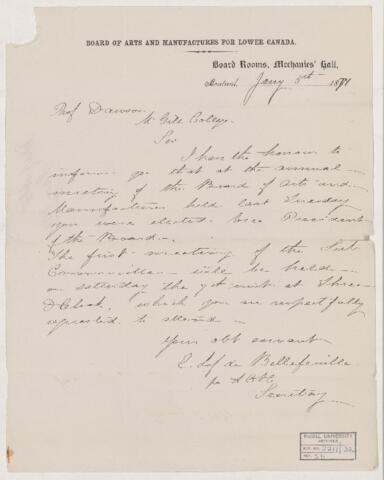 BOARD OF ARTS AND MANUFACTURES FOR LOWER CANADA.
Board Rooms, Mechanics' Hall,
Montreal, Jany 5th 1871
Prof Dawson
McGill College
Sir
I have the honour to
inform you that at the annual
meeting of the Board of Arts and
Manufactures held last Tuesday
you were elected Vice President
of the Board.
The first meeting of the Sub
Committee will be held
on Saturday the 7th inst at Three
O'Clock, which you are respectfully
requested to attend
Your obt servant
E. Lef de Bellefeuille
Secretary
McGILL UNIVERSITY
ARCHIVES
ACC. NO. 2211/
REF.